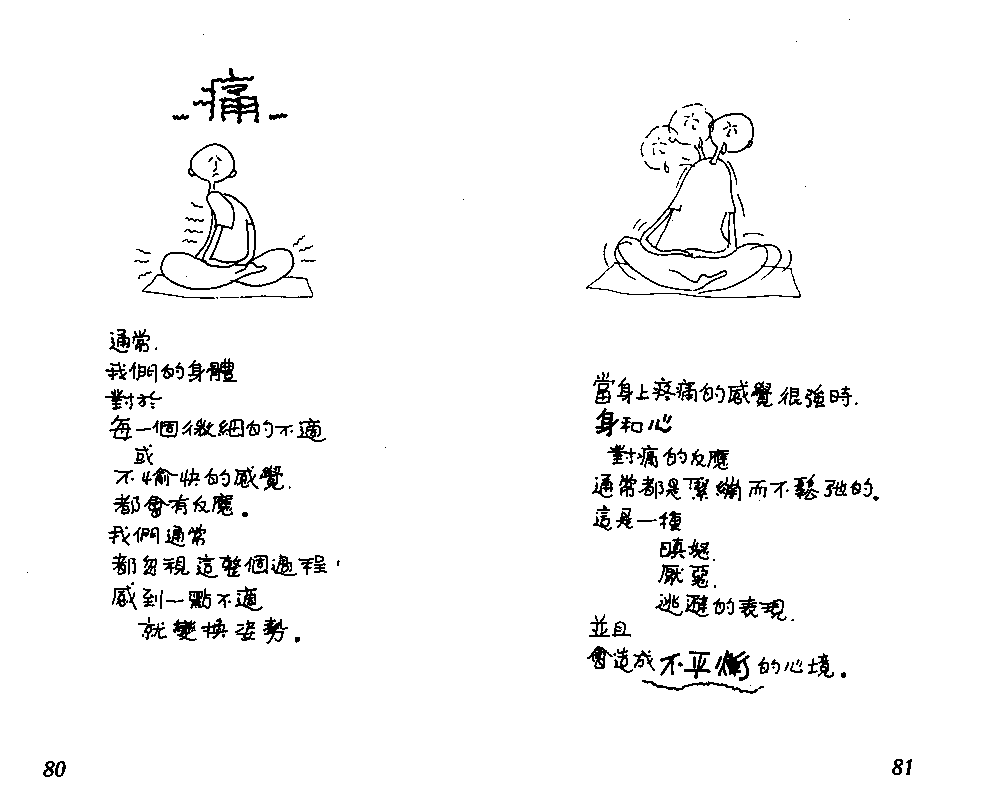 痛
通常.
我們的身體
對於
每一個微細的不適
或
不愉快的感覺.
都會有反應。
我們通常
都忽視這整個過程,
感到一點不適
就變換姿勢。
80
當身上疼痛的感覺很強時.
身和心
對痛的反應
通常都是緊繃而不鬆弛的。
這是一種
瞋怒.
厭惡.
逃避的表現.
並且
會造成不平衡的心境。
81